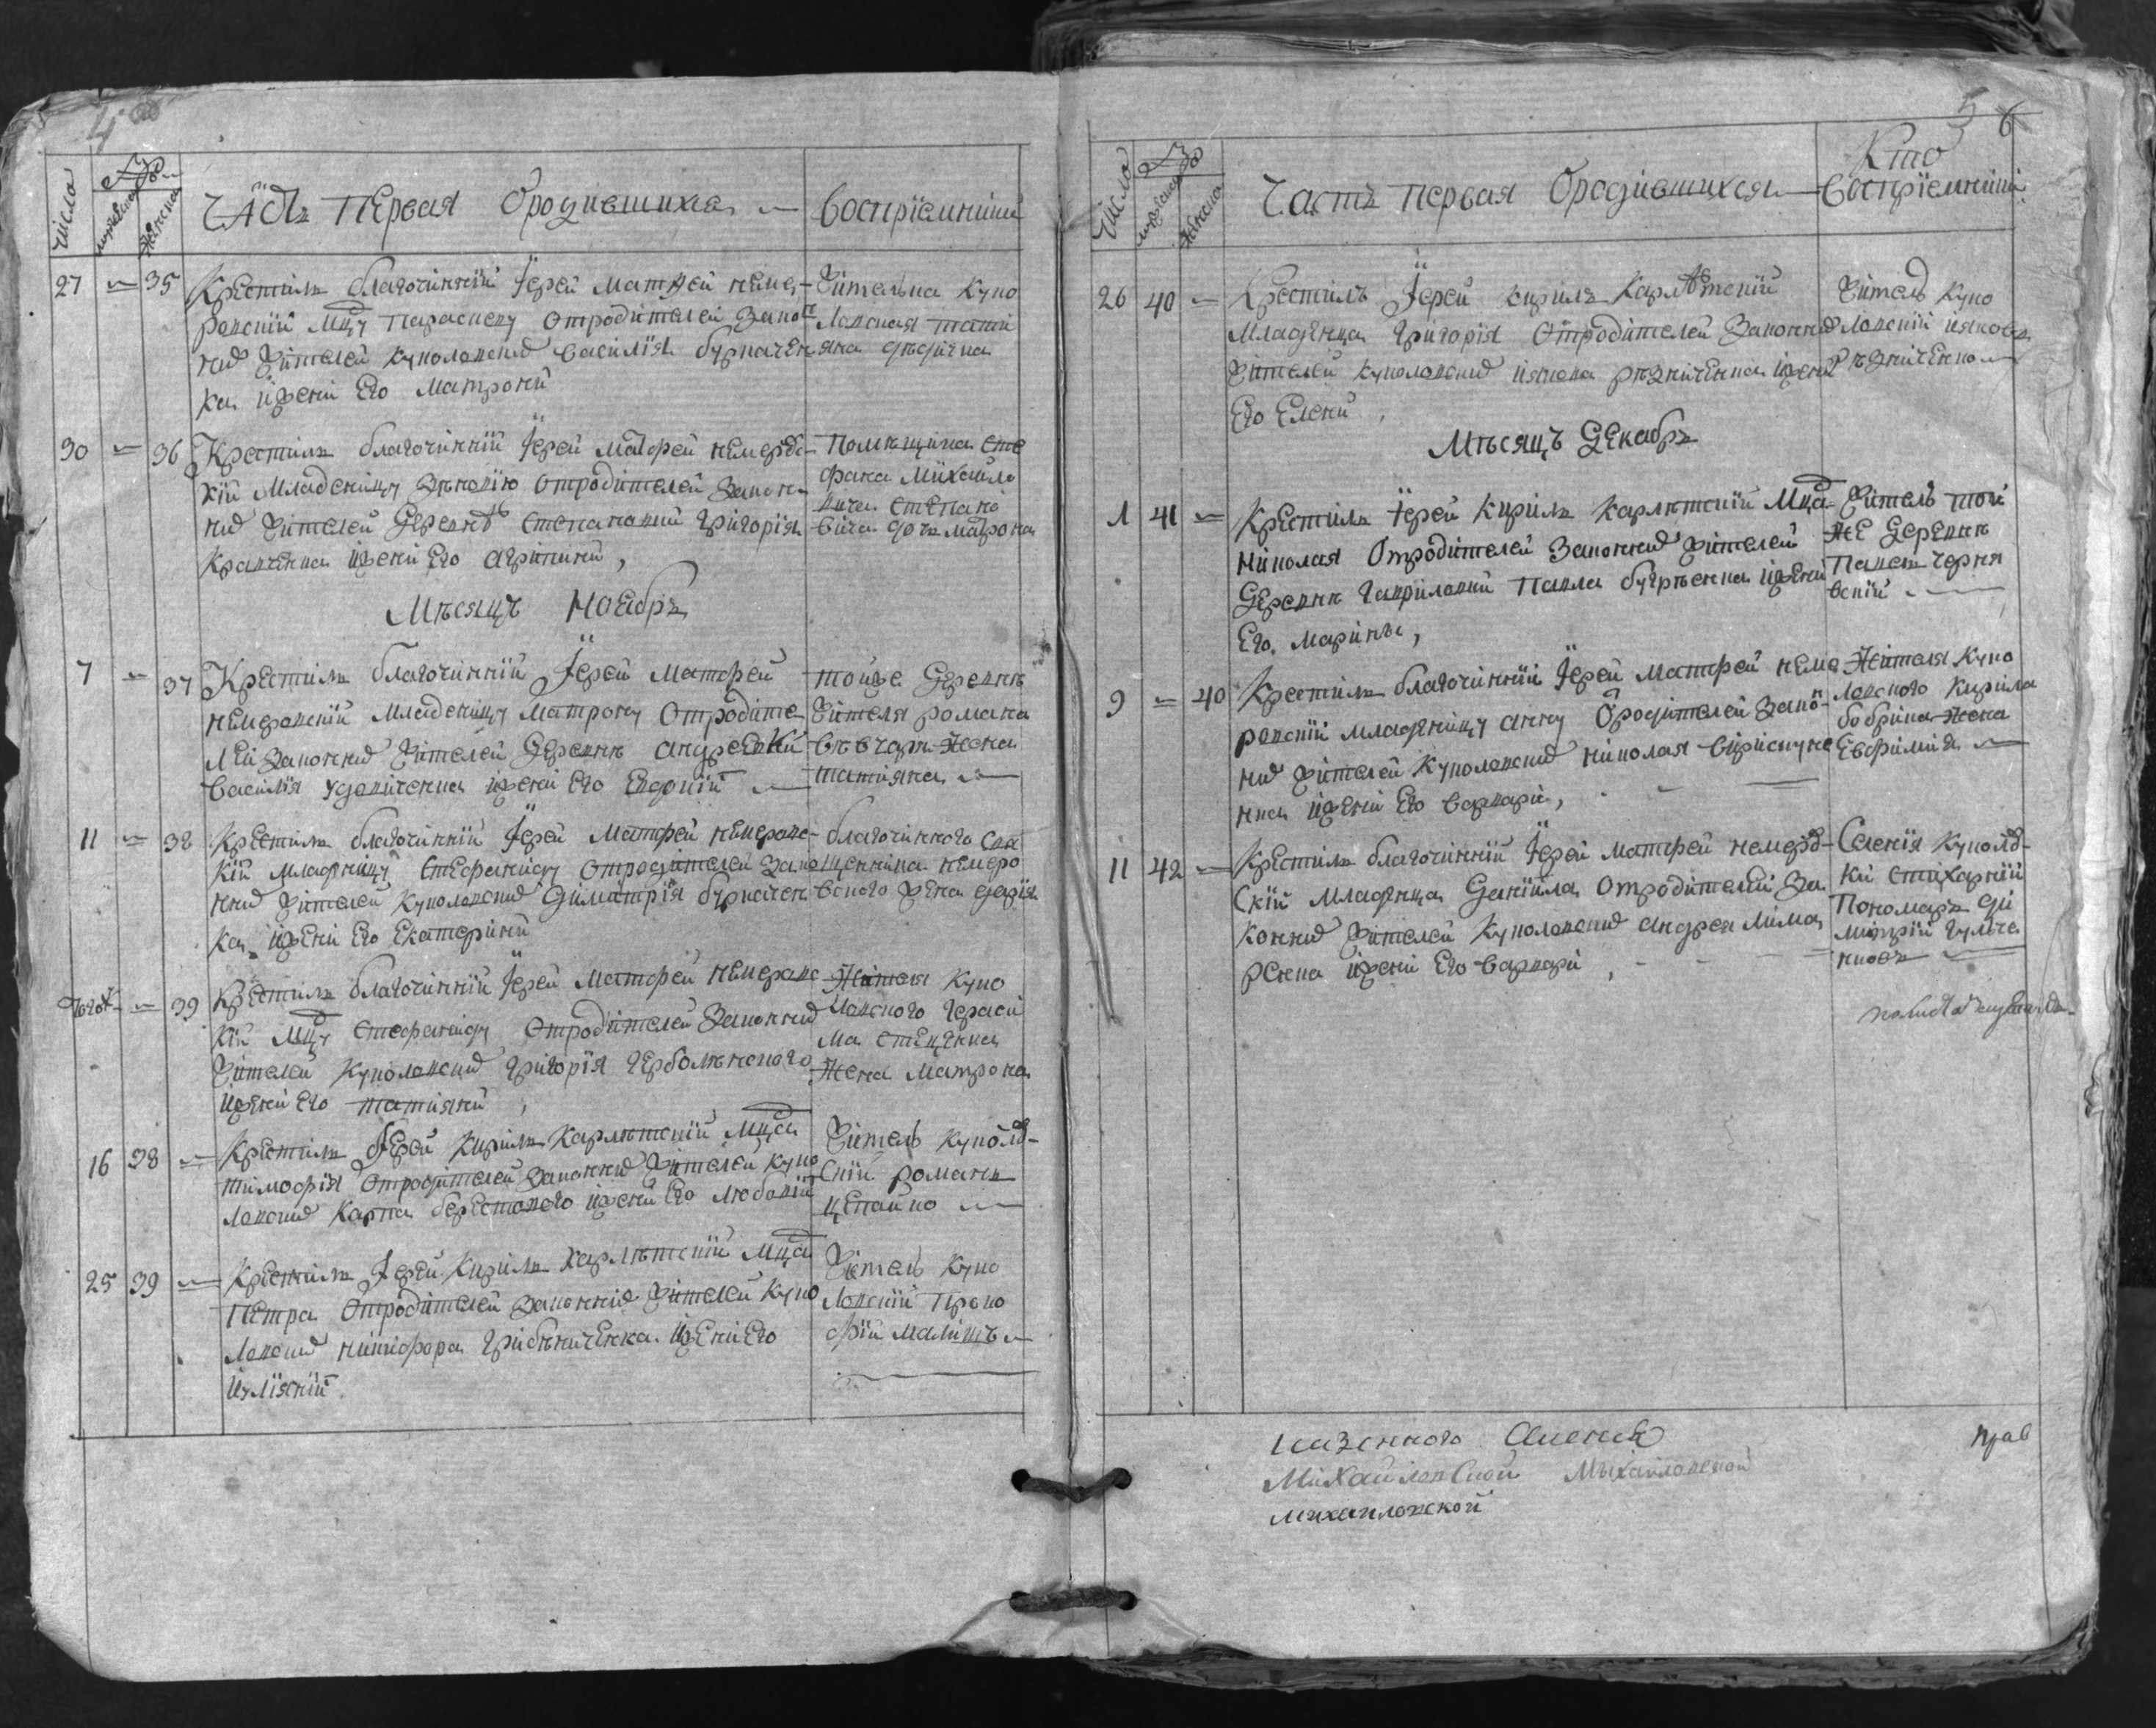 4
Число
мужеска
женска
ЧАСТЬ ПЕрвая Ородившихся
Воспрiемники
27 — 35 Крестилъ благочинний Iерей Матфей немē-
ровский Мцу Параскеву Отродителей Закон
них жителей куполовских Василiя бурначен
ка иЖени Его Матрони
жителька Купо
ловская тати
яна
30 — 36 Крестилъ благочинний Iерей Матфей немеров
кiй Младеницу Отродителей Закон
них жителей Деревнѣ Степановки Григорiя
Кравченка иЖени Его Агрипини,
помѣщика Сте
фана Михайло
вича Степано
вича дочь Матрона
Мѣсяцъ Ноебръ
7 — 37 Крестилъ благочиннiй Iерей Матфей
немеровскiй Младеницу Матрону Отродите
лей Законних Жителей Деревнѣ андреевки
Василiя Удовиченка иЖени Его Евдокiи
тоиже Деревнѣ
жителя романа
жена
татияна
11 — 38 Крестилъ благочиннiй Iерей Матфей немеровс
кiй младеницу Стефаниду Отродителей Зако
нних жителей Куполовских Димитрiя бурначен
ка иЖени Его Екатерини
благочинного Свя
щенника немеро
вского жена дарiя
39 Крестилъ благочиннiй Iерей Матфей немеровс
кiй Мцу Стефаниду Отродителей Законних
жителей Куполовских Григорiя Черболѣнского
иЖени Его татияни,
Жителя Купо
ловского Гераси
ма Стеценка
Жена Матрона
16 38 — Крестилъ Iерей Кирилъ Карлѣтскiй Мца
тимофiя Отродителей Законних жителей Купо
ловских Карпа берестового иЖени Его Любовiи
житель Куполов
скiй романъ
цепайко
25 39 — Крестилъ Iерей Кирилъ Карлѣтскiй Мца
Петра Отродителей Законних жителей Купо
ловских никифора Грибѣниченка иЖени Его
Иулiянiи
житель Купо
ловскiй Проко
фiй Малишъ
5 6
Число
мужеска
женска
Часть первая Ородившихся
Кто
Воспрiемники
26 40 — Крестилъ Iерей кирилъ Карлѣтскiй
Младенца Григорiя Отродителей Законних
жителей куполовских иякова рѣзниченка иЖени
Его Елени,
житель Купо
ловскiй ияковъ
рѣзниченко
Мѣсяцъ Декабръ
1 41 — Крестилъ Iерей Кирилъ Карлѣтскiй Мца
николая Отродителей Законних жителей
Деревнѣ Гавриловки Павла иЖени
Его Марини,
житель той
же Деревнѣ
Павелъ Черня
вскiй
9 — 40 Крестилъ благочиннiй Iерей Матфей неме
ровскiй младеницу анну Ородителей Зако
них жителей Куполовских николая
нка иЖени Его Варвари,
Жителя Купо
ловского Кирила
бобрика жена
Евфимия
11 42 — Крестилъ благочиннiй Iерей Матфей немеров
скiй Младенца Данiила Отродителей За
конних жителей Куполовских андрея Мима
ренка иЖени Его Варвари,
Селенiя Куполов
ки Стихарнiй
Пономаръ Ди
митрiй Гулче
нковъ
казенного Селенiя
Михайловской Михайловской
михайловской
прав